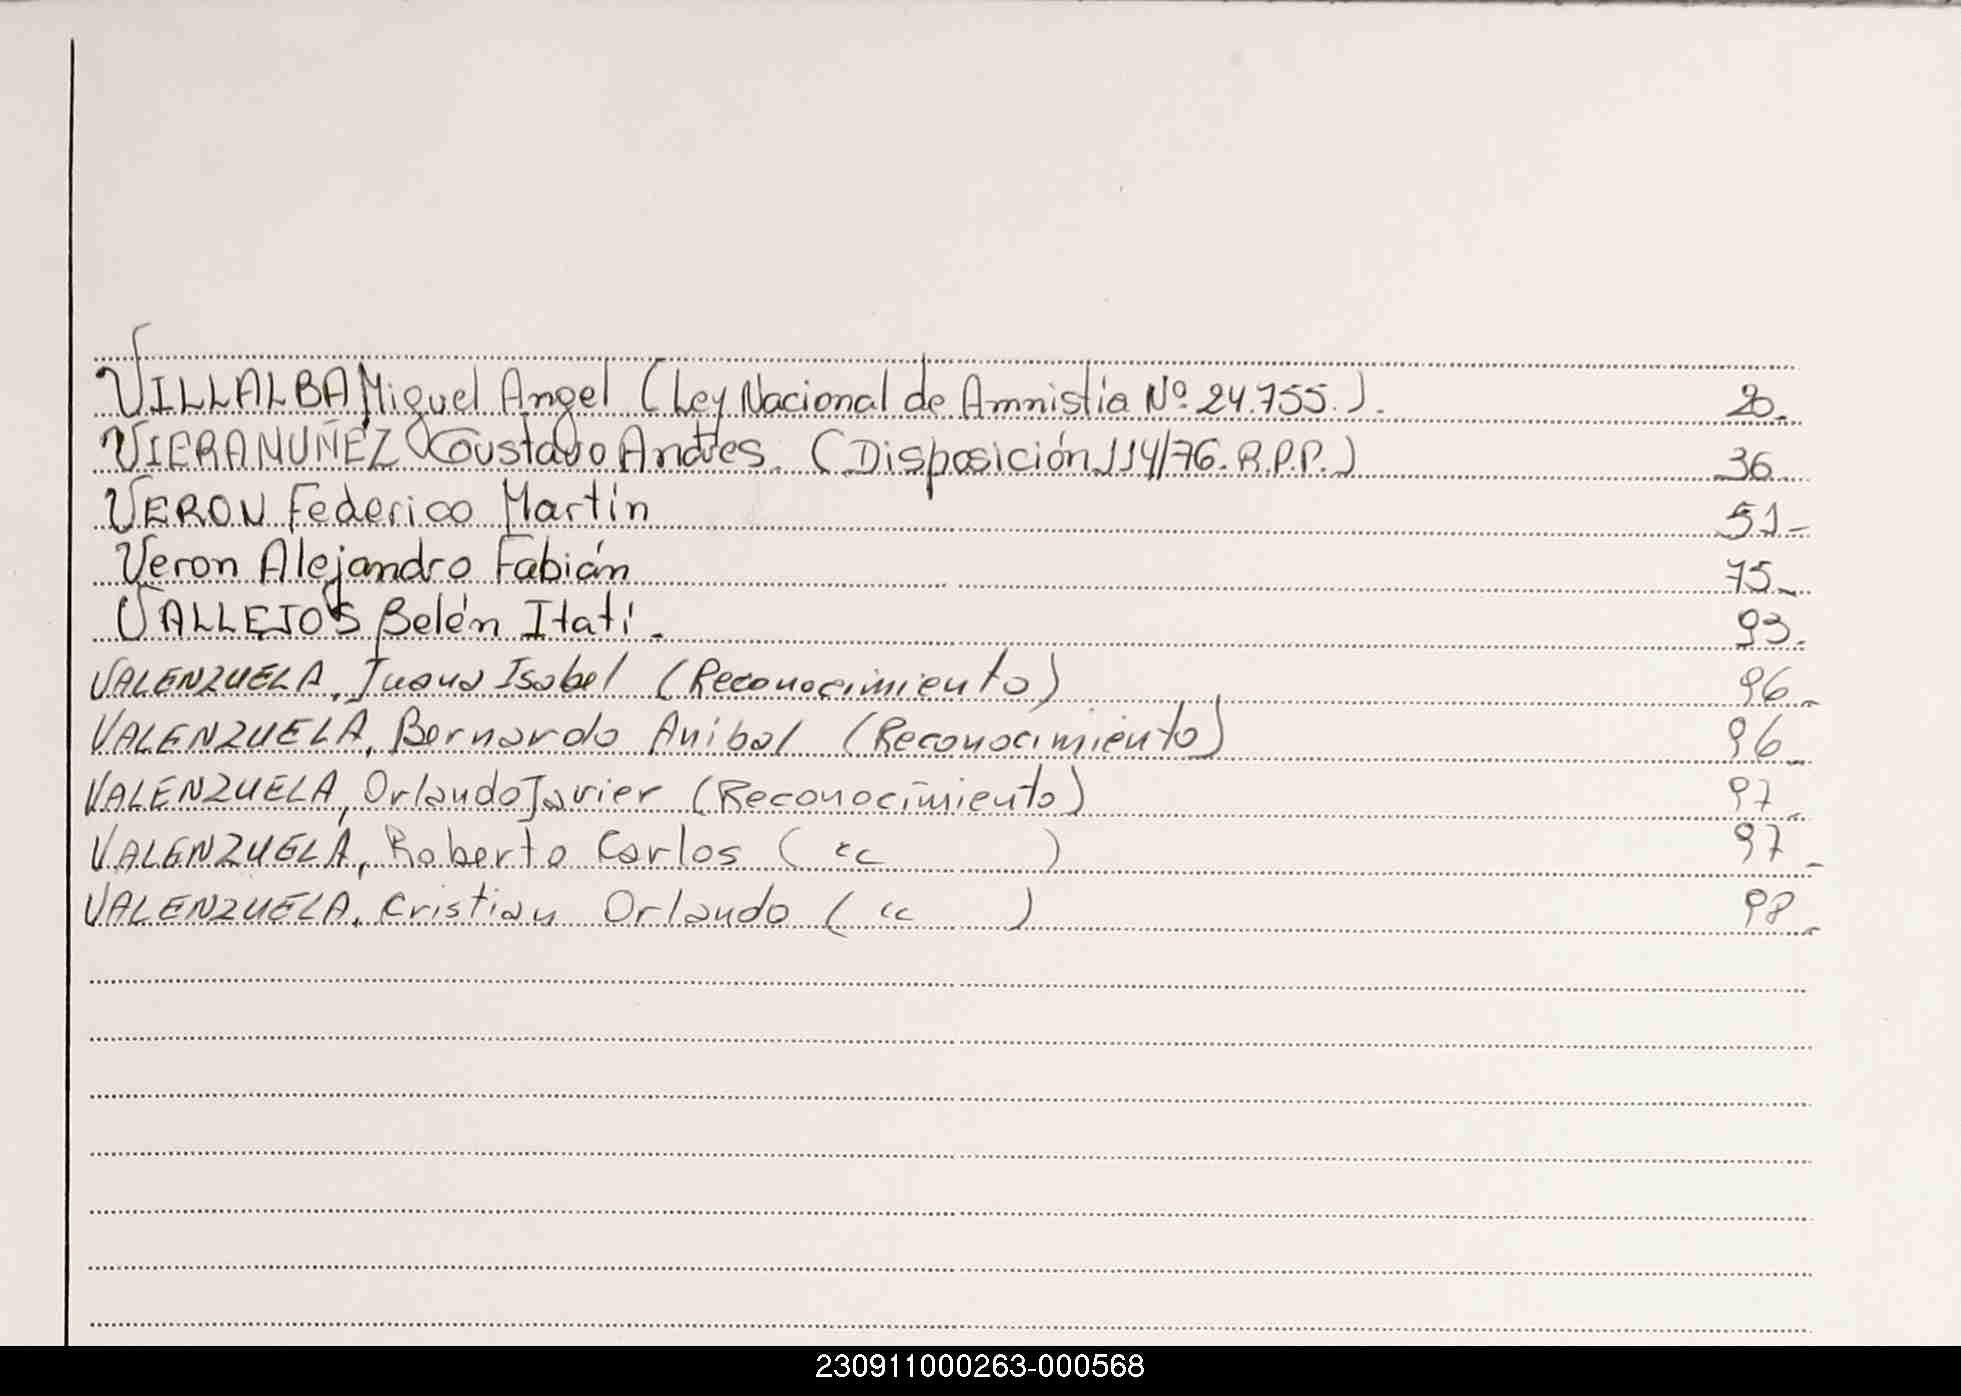 VILLALBA Miguel Angel (Ley Nacional de Amnistía Nº 24.755.). 20.
VIERA NUÑEZ Gustavo Andrés. (Disposición 114/76. R.P.P.) 36
VERON Federico Martín 51-
Veron Alejandro Fabián 75-
VALLEJOS Belén Itatí. 93.
VALENZUELA, Juana Isabel (Reconocimiento) 96-
VALENZUELA, Bernardo Anibal (Reconocimiento) 96-
VALENZUELA, Orlando Javier (Reconocimiento) 97-
VALENZUELA, Roberto Carlos ( cc ) 97-
VALENZUELA, Cristian Orlando ( cc ) 98-
230911000263-000568